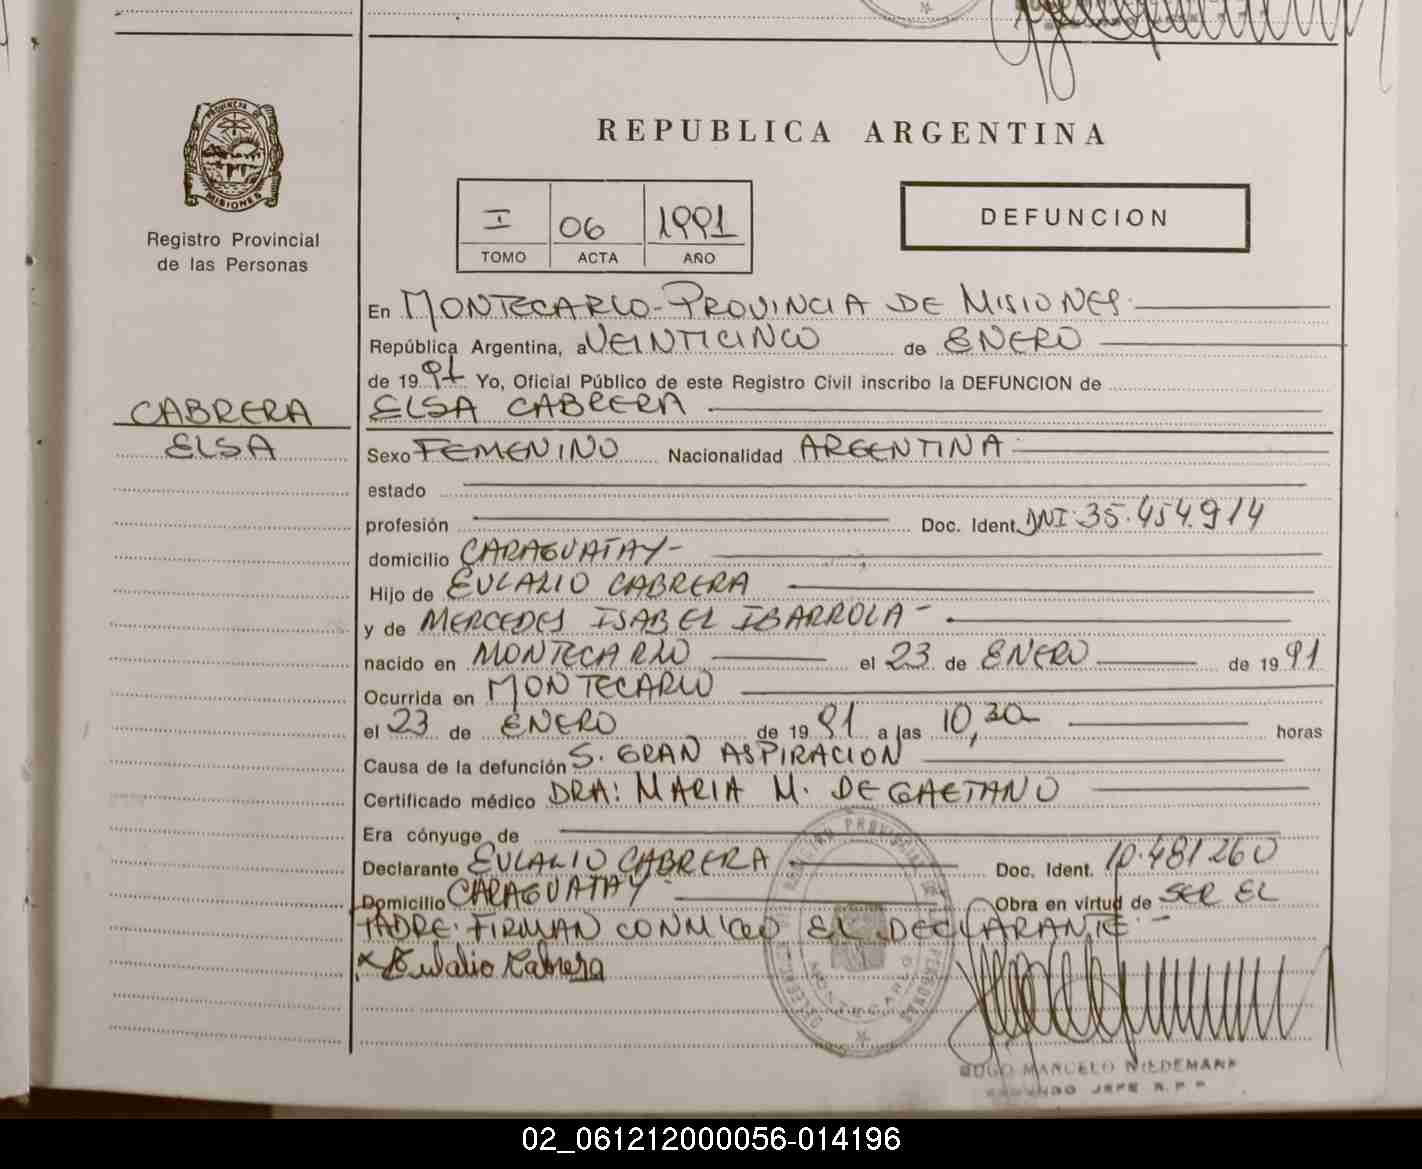 REPUBLICA ARGENTINA
PROVINCIA DE
MISIONES
Registro Provincial
de las Personas
I 06 1991
TOMO ACTA AÑO
DEFUNCION
En MONTECARLO-PROVINCIA DE MISIONES
República Argentina, a VEINTICINCO de ENERO
de 1991 Yo, Oficial Público de este Registro Civil inscribo la DEFUNCION de
ELSA CABRERA
CABRERA
ELSA
Sexo FEMENINO Nacionalidad ARGENTINA
estado
profesión Doc. Ident. DNI 35.454.914
domicilio CARAGUATAY-
Hijo de EULALIO CABRERA
y de MERCEDES ISABEL IBARROLA-
nacido en MONTECARLO el 23 de ENERO de 1991
Ocurrida en MONTECARLO
el 23 de ENERO de 1991 a las 10,30 horas
Causa de la defunción S. GRAN ASPIRACION
Certificado médico DRA: MARIA M. DE GAETANO
Era cónyuge de
Declarante EULALIO CABRERA Doc. Ident. 10.481260
Domicilio CARAGUATAY Obra en virtud de SER EL
PADRE. FIRMAN CONMIGO EL DECLARANTE.-
Eulalio Cabrera
MONTECARLO
HUGO MARCELO NIEDEMANN
SEGUNDO JEFE R.P.P
02_061212000056-014196